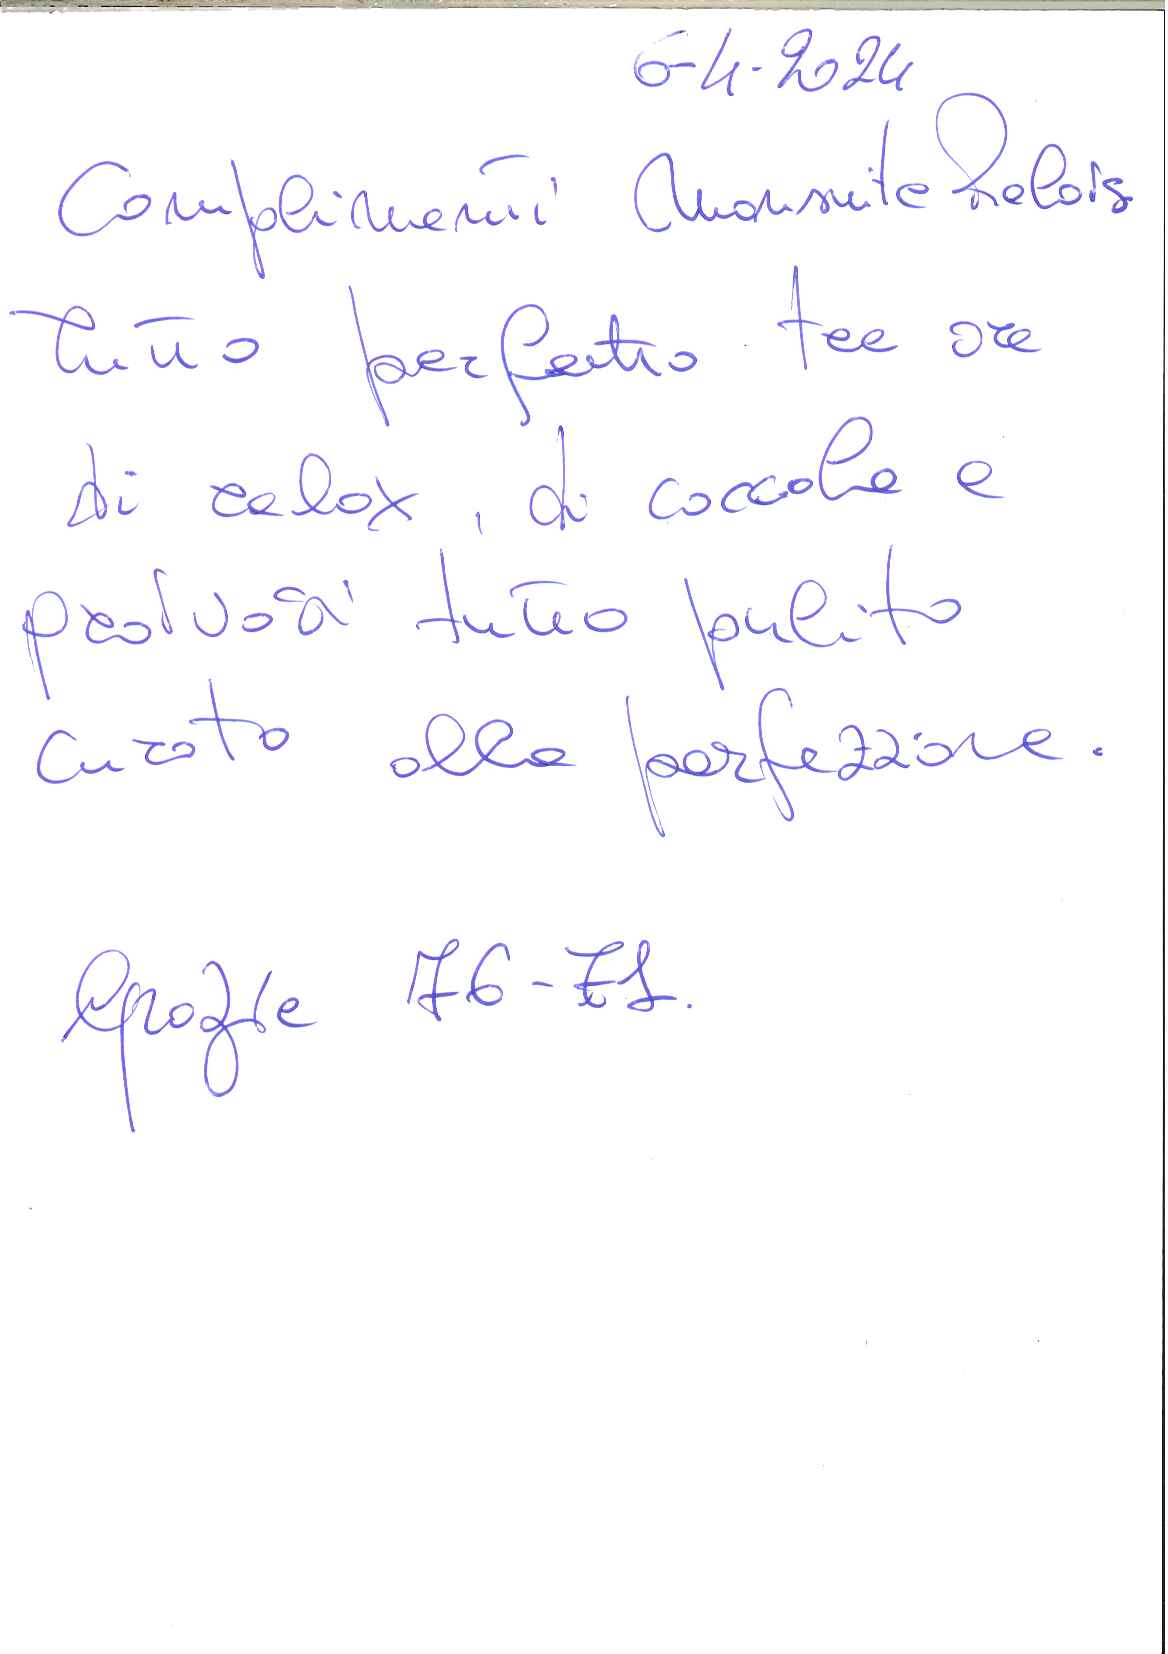 6-4-2024
Complimenti Monsuite Relais
Tutto perfetto tre ore
di relax, di coccole e
privosà tutto pulito
curato alla perfezione.
Grazie 76-71.